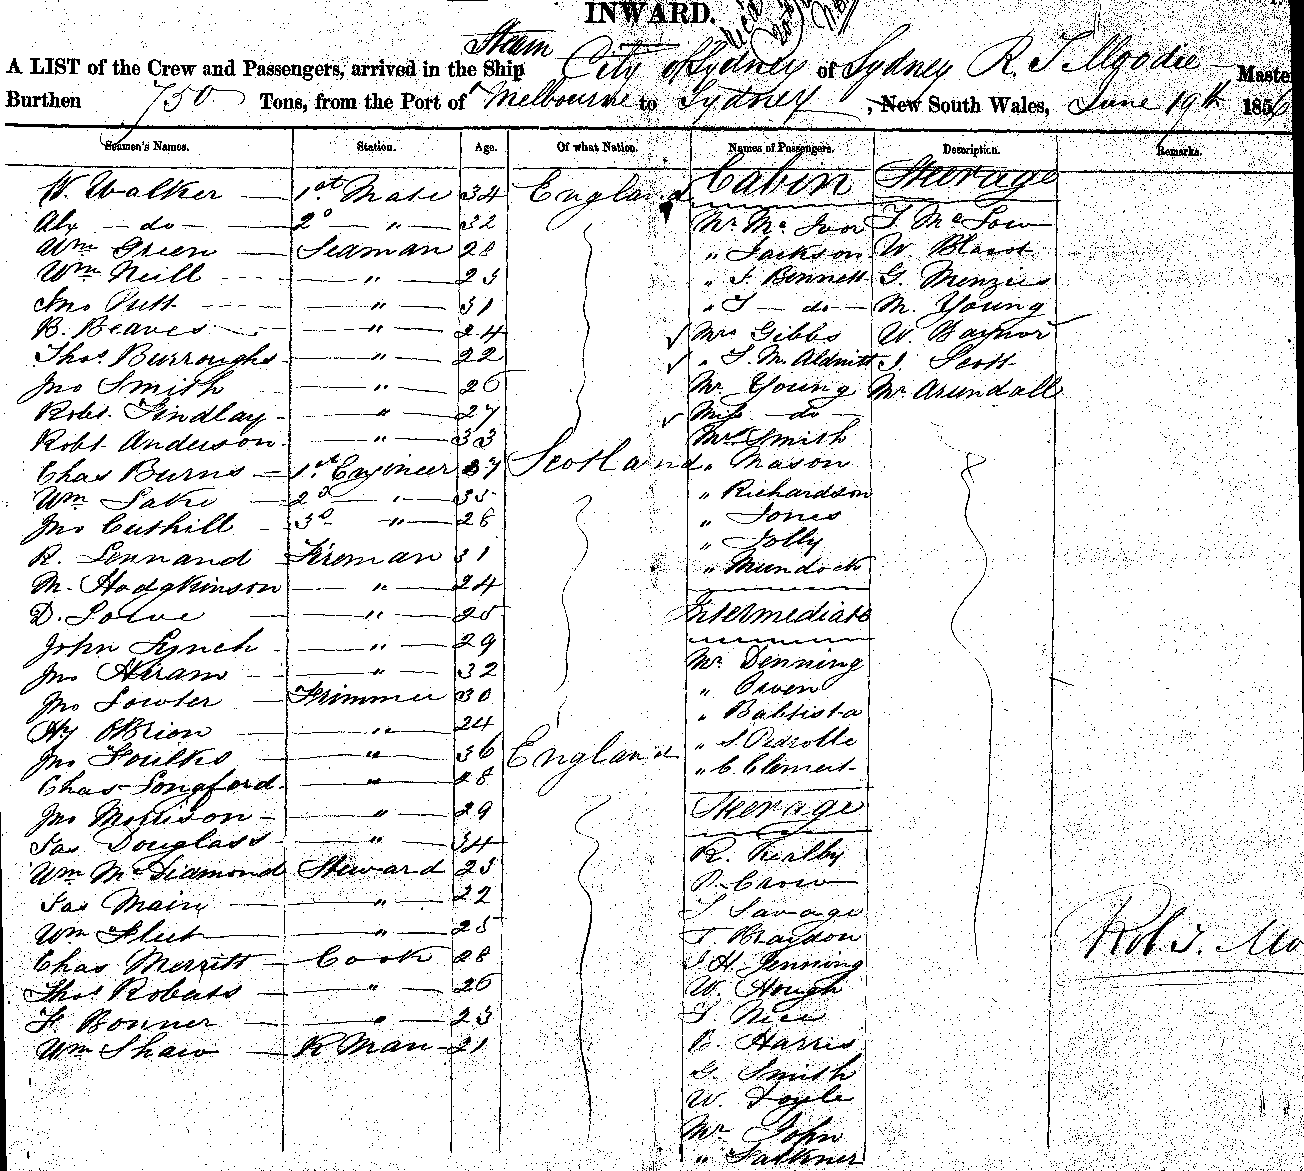 INWARD.
Steam
A LIST of the Crew and Passengers, arrived in the Ship City of Sydney of Sydney R. T. Moodie Master
Burthen 750 Tons, from the Port of Melbourne to Sydney, New South Wales, June 19th 1856
Seamen's Names. Station. Age. Of what Nation. Names of Passengers. Description. Remarks.
W. Walker 1st Mate 34 England Cabin Steerage
Alx do 2d " 32 Mr Mc Ivor T Mc Low
Wm Green Seaman 28 " Jackson W.
Wm Neill " 23 " J. Bennett G. Menzies
Jno " 31 " T do M. Young
B. Beaves " 24 Mrs Gibbs W. Baynor
Thos Burroughs " 22 " J. Scott
Jno Smith " 26 Mr Young Mr Arundall
Robt Findlay " 27 Miss do
Robt Anderson " 33 Mr Smith
Chas Burns 1st Engineer 37 Scotland " Mason
Wm Lake 2d " 35 " Richardson
Jno Cuthill 3d " 28 " Jones
" Jolly
R. Lennand Fireman 31 " Murdock
M. Hodgkinson " 24
D. Lowe " 25 Intermediate
John Lynch " 29
Jno Hiram " 32 Mr Denning
Jno Lowter Trimmer 30 " Owen
Hy O'Brion " 24 " Babtista
Jno Foulks " 36 England " S. Pedrolle
Chas Longford " 28 " C. Clement
Jno Morrison " 29 Steerage
Jas Douglass " 34
Wm McDiamond Steward 23 R. Kerlby
Jas Main " 22 P. Crow
Wm Fleet " 25 T Savage
Chas Merritt Cook 28 T. Braydon
Thos Robats " 26 J. H. Jenning
F. Bonner " 23 W. Hough
Wm Shaw R Man 21 T Nice
B. Harris
G. Smith
W. Doyle
Mr John
" Falkner
Robt. T. Mo